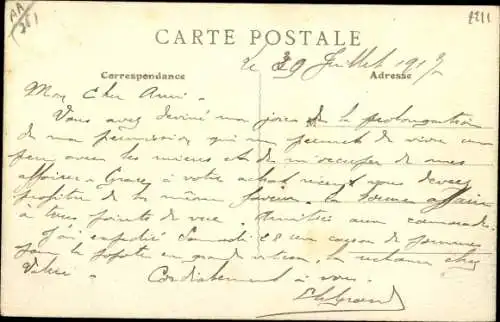 AA
281
2211
CARTE POSTALE
Le 29 Juillet 191
Correspondance
Adresse
Mon Cher Ami -
Vous avez deviné ma joie de la prolongation
de ma permission qui me permet de vivre un
peu avec les miens et de m'occuper de mes
affaires - Grâce à votre achat récent vous devez
profiter de la même faveur. La bonne affaire
à tous points de vue. Amitiés aux camarades.
J'ai expédié Samedi 28 un
pour la popote en grande vitesse, la chez
Cordialement à vous.